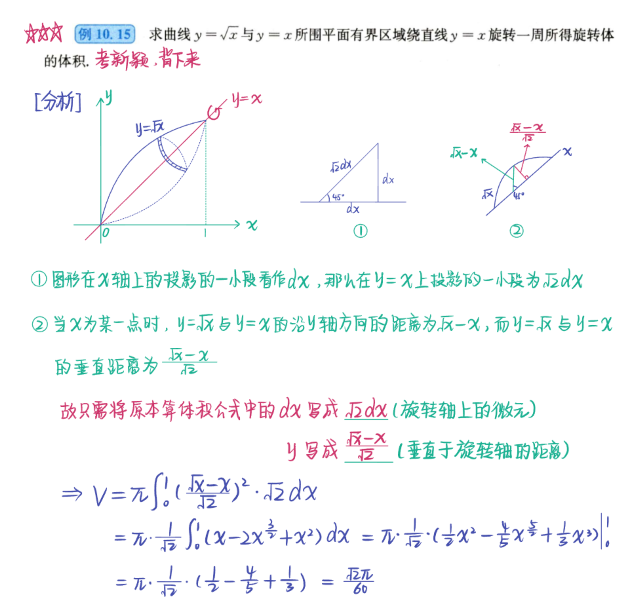 ☆☆☆ 例 10.15 求曲线 y = √x 与 y = x 所围平面有界区域绕直线 y = x 旋转一周所得旋转体
的体积. 考新颖,背下来
[分析]
y
y=x
y=√x
0
1
x
√2dx
dx
45°
dx
①
(√x-x)/√2
√x-x
x
√x
45°
②
① 图形在x轴上的投影的一小段看作dx,那么在y=x上投影的一小段为√2dx
② 当x为某一点时,y=√x与y=x的沿y轴方向的距离为√x-x,而y=√x与y=x
的垂直距离为 (√x-x)/√2
故只需将原本算体积公式中的dx写成 √2dx (旋转轴上的微元)
y写成 (√x-x)/√2 (垂直于旋转轴的距离)
⇒ V = π∫₀¹ ((√x-x)/√2)² · √2 dx
= π · 1/√2 ∫₀¹ (x-2x^(3/2)+x²) dx = π · 1/√2 · (1/2 x² - 4/5 x^(5/2) + 1/3 x³)|₀¹
= π · 1/√2 · (1/2 - 4/5 + 1/3) = √2π/60